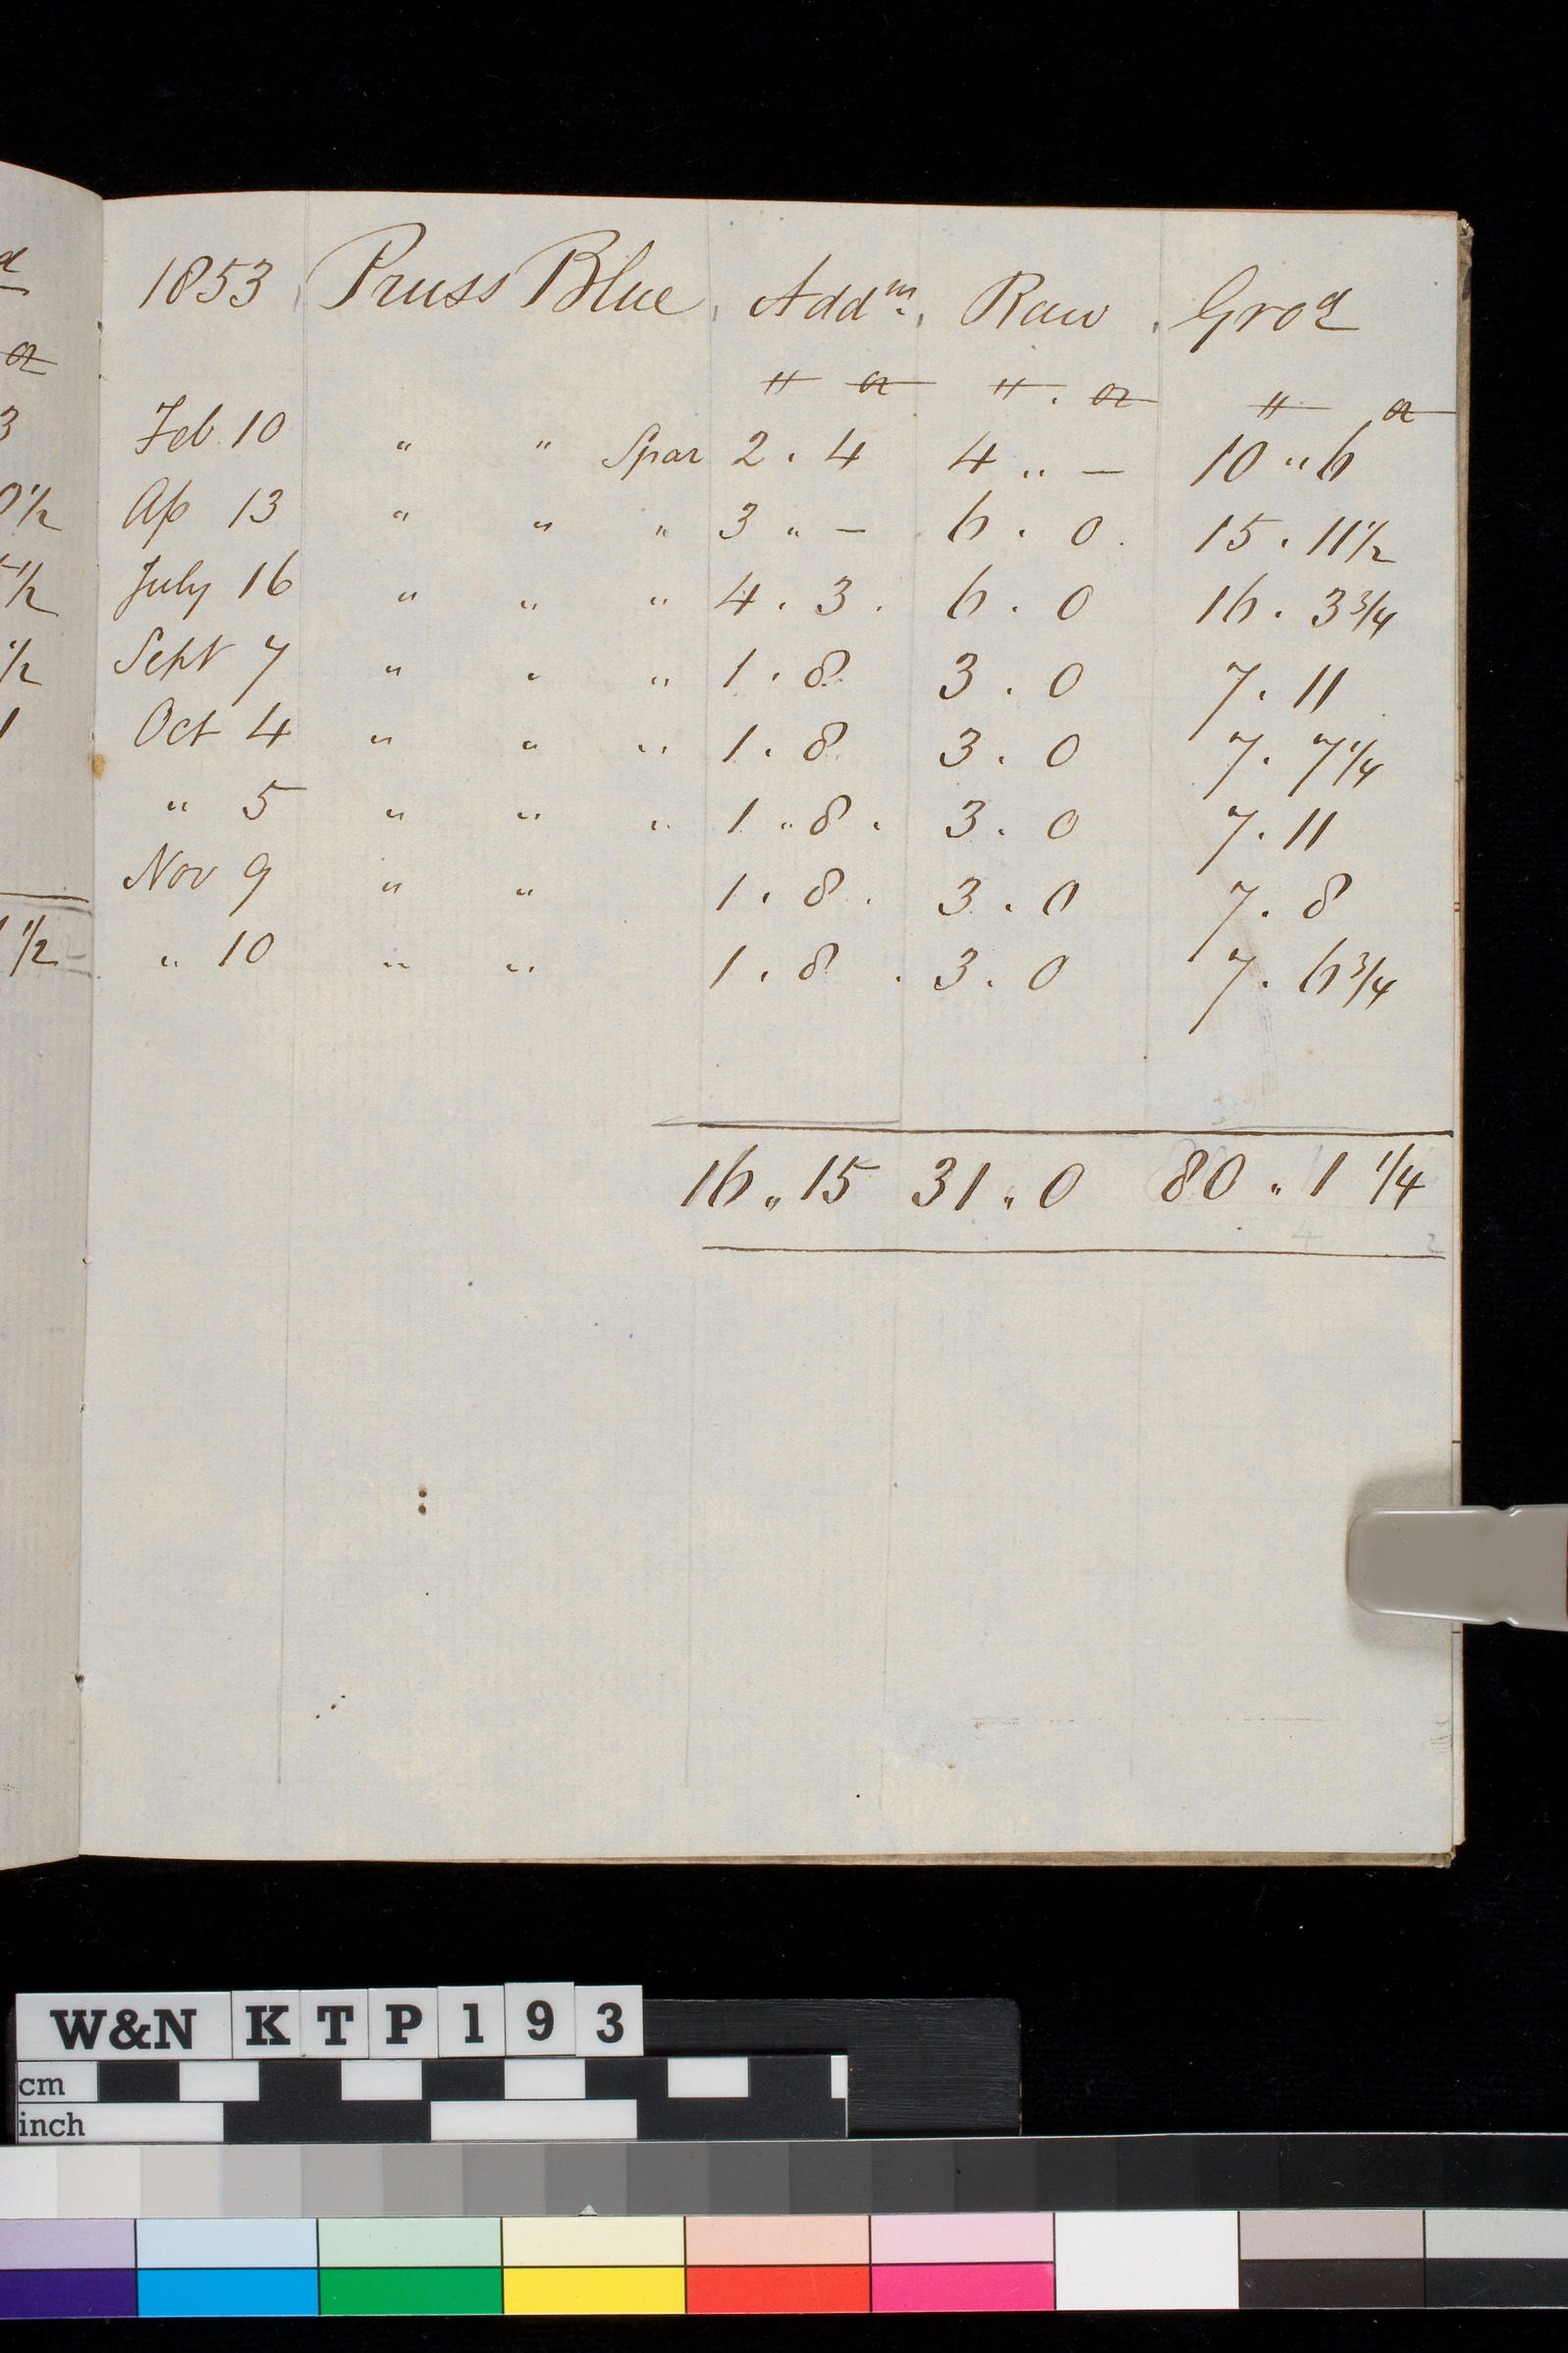 1853 Pruss Blue Addm. Raw Grod
lb oz lb . oz lb oz
Feb 10 " " Spar 2 . 4 4 .. — 10 " 6
Ap 13 " " " 3 " — 6 . 0 . 15 . 11 1/2
July 16 " " " 4 . 3 . 6 . 0 16 . 3 3/4
Sept 7 " " " 1 . 8 3 . 0 7 . 11
Oct 4 " " " 1 . 8 3 . 0 7 . 7 1/4
" 5 " " " 1 " 8 . 3 . 0 7 . 11
Nov 9 " " 1 . 8 . 3 . 0 7 . 8
" 10 " " 1 . 8 . 3 . 0 7 . 6 3/4
16 " 15 31 " 0 80 " 1 1/4
W&N KTP193
cm
inch